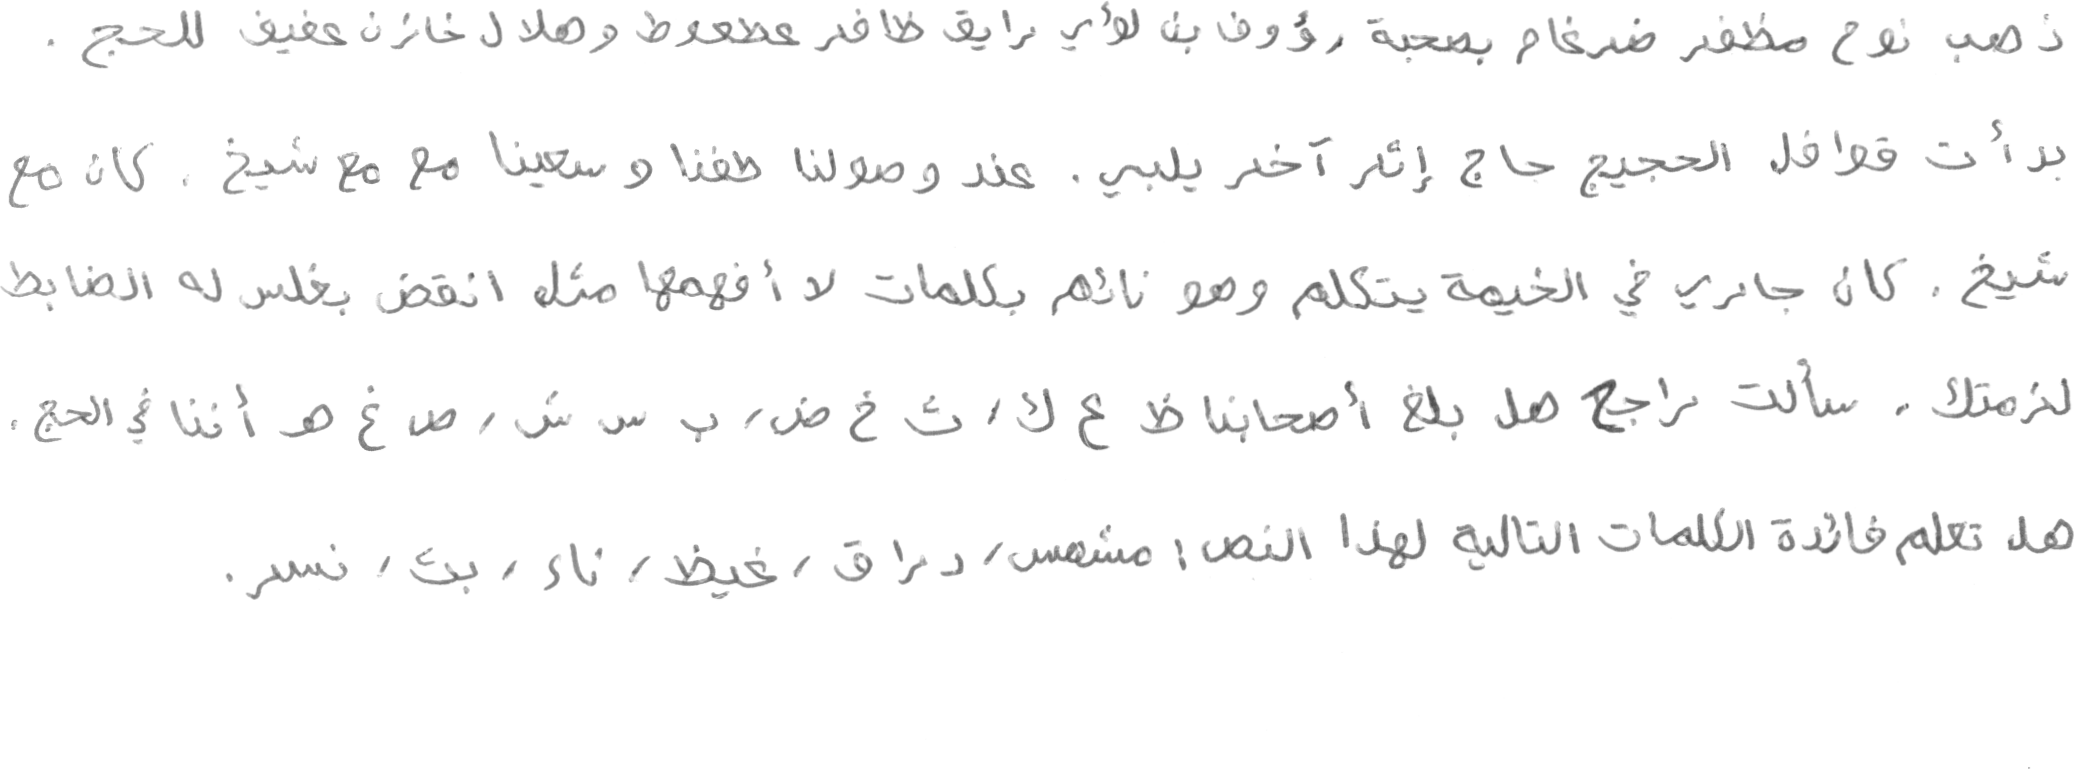 ذهب نوح مظفر ضرغام بصحبة رؤوف بن لؤي رايق ظافر عطعوط وهلال خازن عفيف للحج .
بدأت قوافل الحجيج حاج إثر آخر يلبي . عند وصولنا طفنا و سعينا مع مع شيخ . كان مع
شيخ . كان جاري في الخيمة يتكلم وهو نائم بكلمات لا أفهمها مثل انقض بغلس له الضابط
لخزمتك . سألت راجح هل بلغ أصحابنا ظ ع ك ، ث خ ض ، ب س ش ، ص غ هـ أننا في الحج .
هل تعلم فائدة الكلمات التالية لهذا النص : مشمس ، دراق ، غيظ ، ناء ، بث ، نسر .